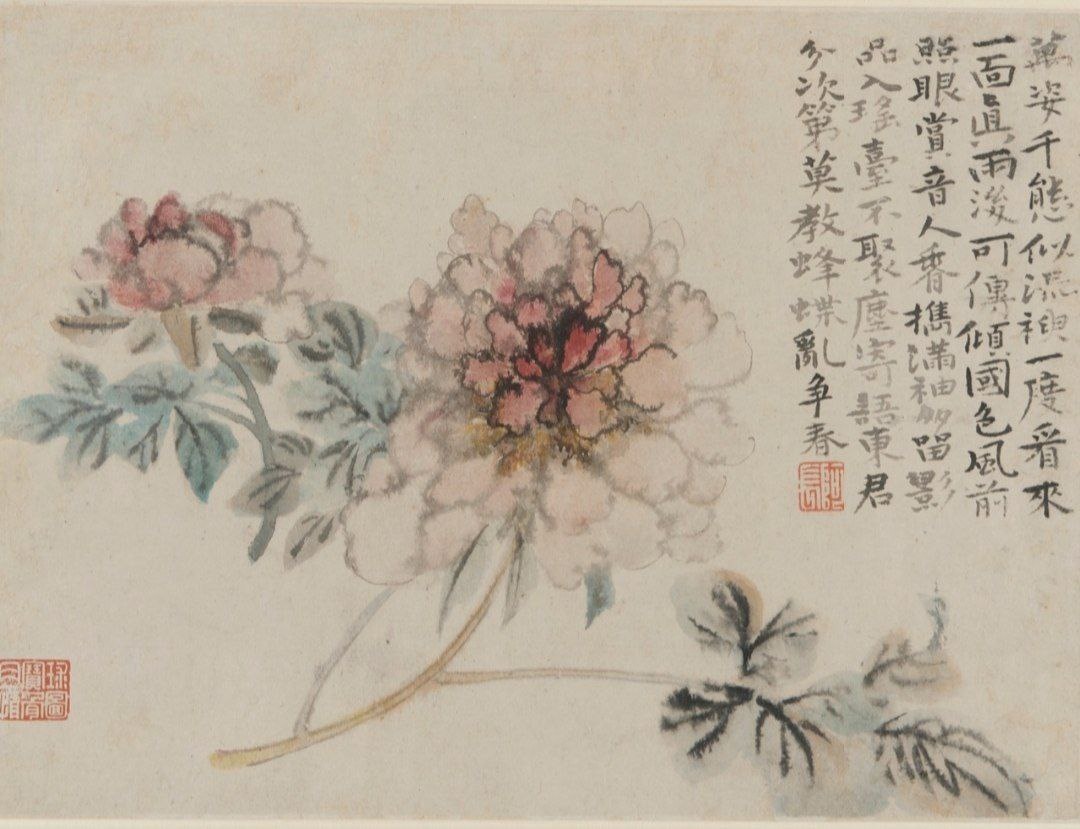 萬姿千態似流神一度看來
一面真雨後可傳傾國色風前
照眼賞音人香攜滿袖多留影
品入瑤臺不聚塵寄語東君
分次第莫教蜂蝶亂爭春
阿長